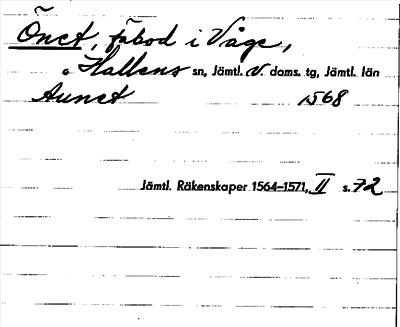 Önet, fäbod i Våge,
Hallens sn, Jämtl. V. doms. tg, Jämtl. län
Åunet 1568
Jämtl. Räkenskaper 1564–1571, II s. 72